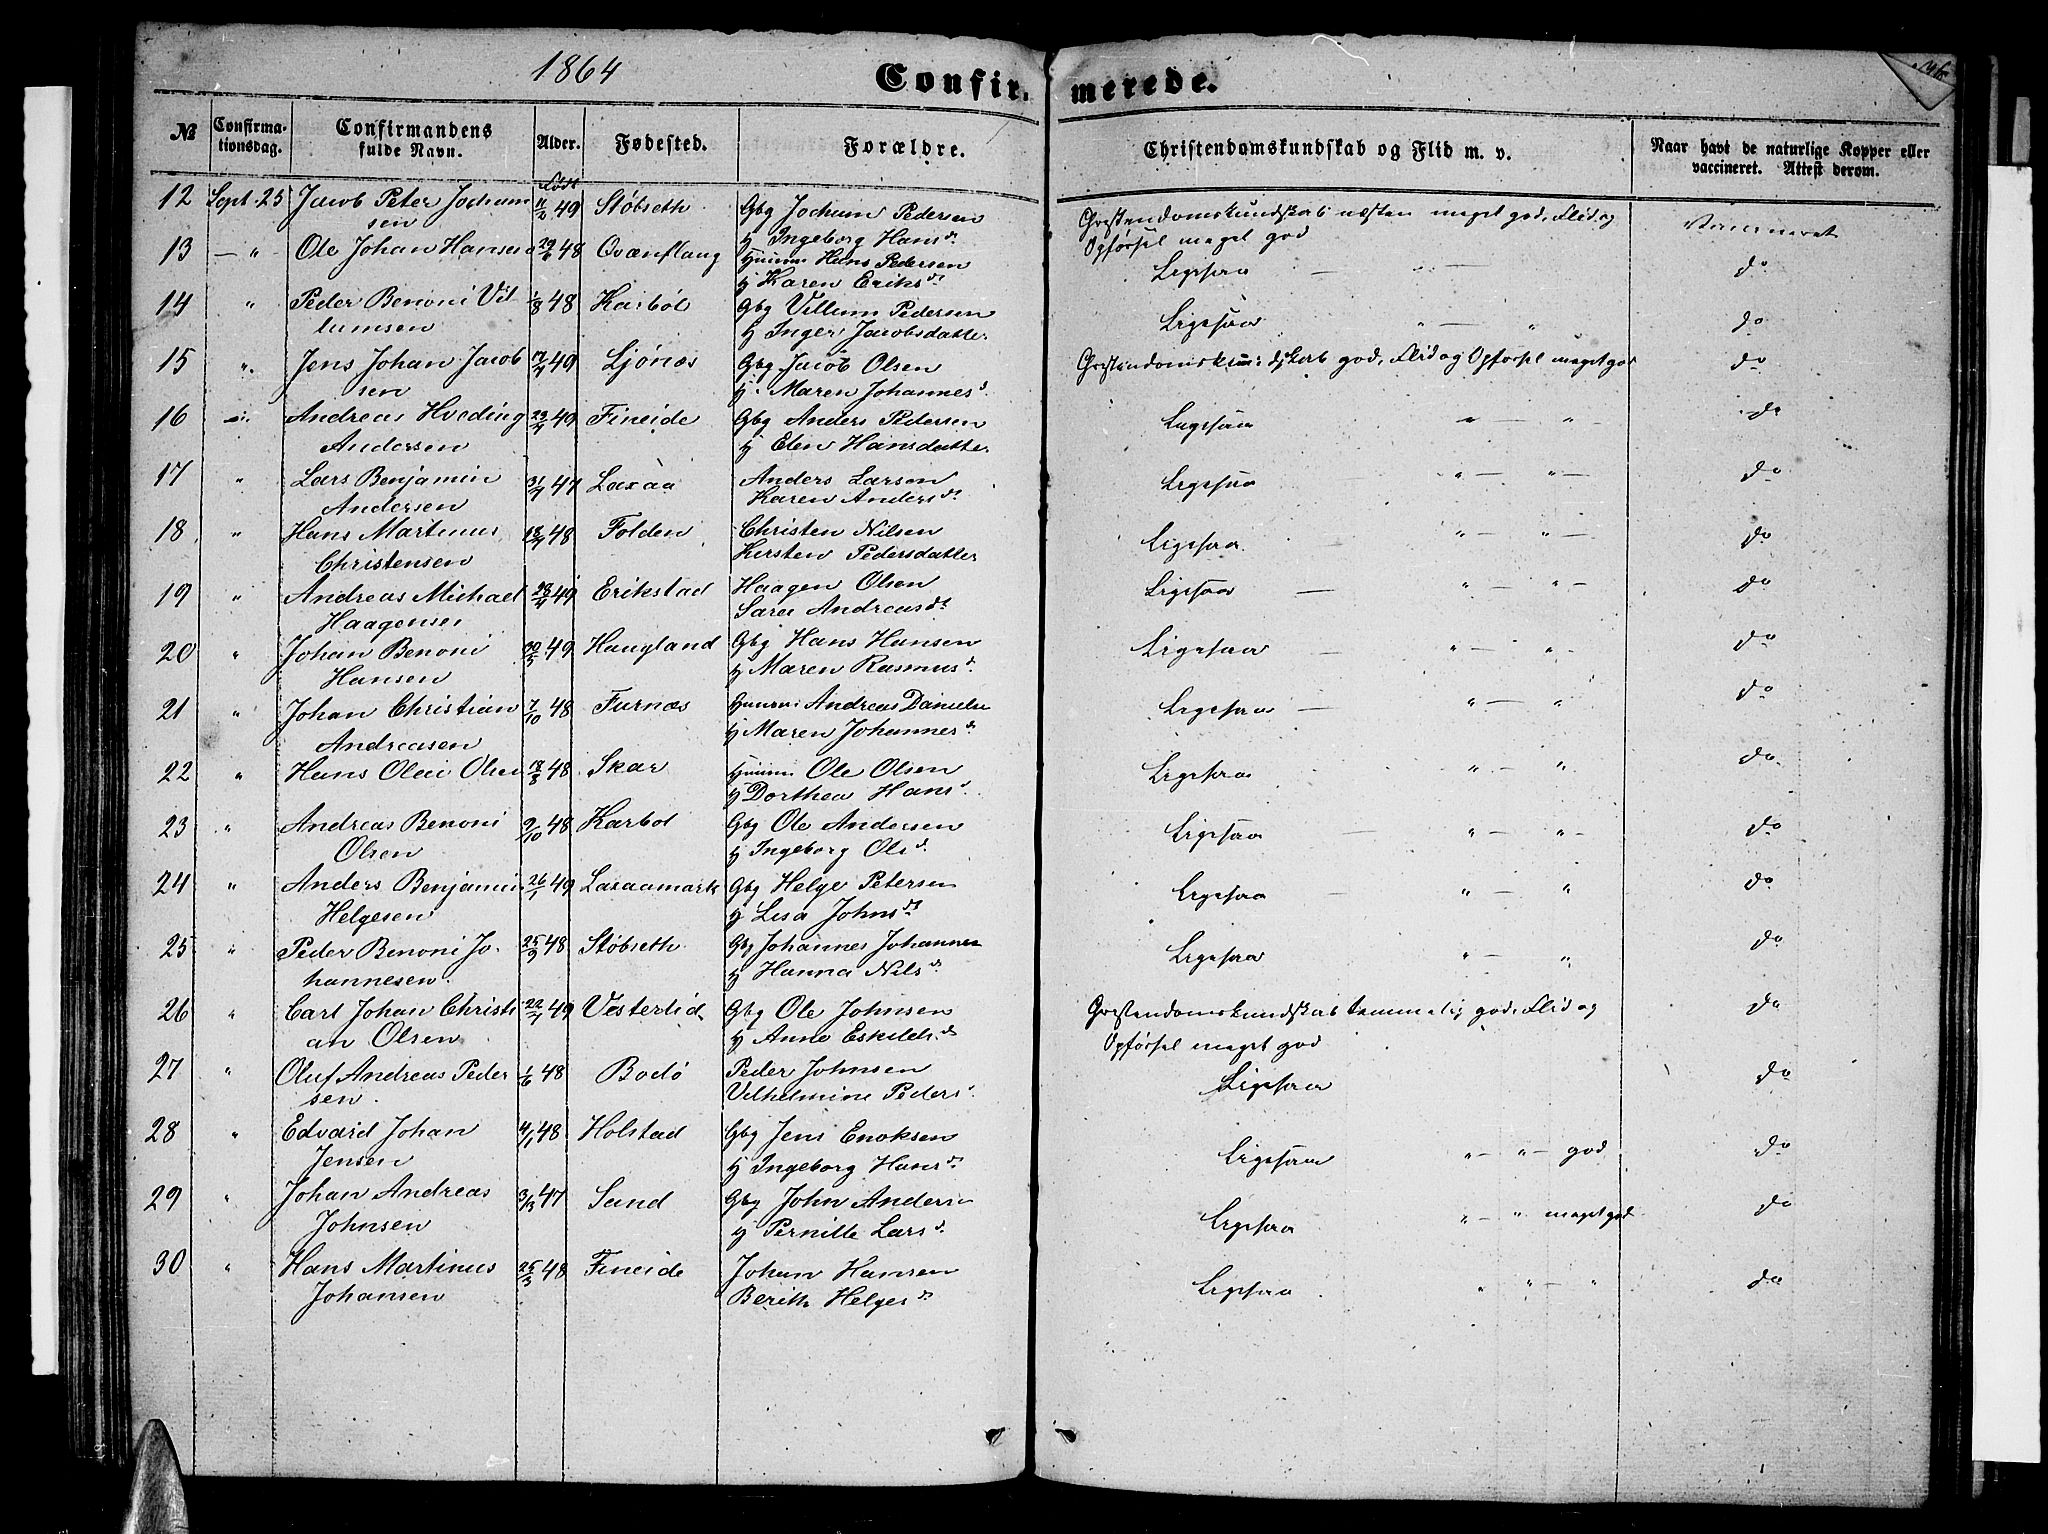 1864
Confir- merede.
№ Confirma- tionsdag. Confirmandens fulde Navn. Alder. Fødested. Forældre. Christendomskundskab og Flid m. v. Naar havt de naturlige Kopper eller vaccineret. Attest derom.
født
12 Sept. 25 Jacob Peter Jochum 49 Støbseth Gbg Jochum Pedersen Christendomskundskab næsten meget god, Flid og Vaccineret
sen Hj Ingeborg Hansdr. Opførsel meget god
13 — " Ole Johan Hansen 29/6 48 Qvænflaug Huusm Hans Pedersen Ligesaa — " — do
Hj Karen Eriksdr.
14 " Peder Benoni Vil 1/8 48 Karbøl Gbg Villum Pedersen Ligesaa " — " do
lumsen Hj Inger Jacobsdatter
15 " Jens Johan Jacob 17/4 49 Ljønæs Gbg Jacob Olsen Christendomskundskab god, Flid og Opførsel meget god do
sen Hj Maren Johannesd.
16 " Andreas Hveding 23/4 49 Fineide Gbg Anders Pedersen Ligesaa " — " do
Andersen Hj Elen Hansdatter
17 " Lars Benjamin 31/7 47 Laxaa Anders Larsen Ligesaa " — " — do
Andersen Karen Andersdr.
18 " Hans Martinus 18/7 48 Folden Christen Nilsen Ligesaa " — " — do
Christensen Kirsten Pedersdatter
19 " Andreas Michael 28/4 49 Erikstad Haagen Olsen Ligesaa — " " — do
Haagensen Sara Andreasdr.
20 " Johan Benoni 30/5 49 Haugland Gbg Hans Hansen Ligesaa " — " - do
Hansen Hj Maren Rasmusd.
21 " Johan Christian 7/10 48 Furnæs Huusm Andreas Danielse Ligesaa — " — " do
Andreasen Hj Maren Johannesd.
22 " Hans Olai Olsen 18/8 48 Skar Huusm Ole Olsen Ligesaa " — " do
Hj Dorthea Hansd.
23 " Andreas Benoni 9/10 48 Karbøl Gbg Ole Andersen Ligesaa — " — " — do
Olsen Hj Ingeborg Olsd.
24 " Anders Benjamin 26/1 49 Laxaamark Gbg Helge Petersen Ligesaa — " — " do
Helgesen Hj Lisa Johnsdr.
25 " Peder Benoni Jo- 25/9 48 Støbseth Gbg Johannes Johannes Ligesaa " — " do
hannesen. Hj Hanna Nilsd.
26 " Carl Johan Christi 22/7 49 Vesterlid Gbg Ole Johnsen Christendomskundskab temmelig god, Flid og do
an Olsen Hj Anne Eskildsd. Opførsel meget god
27 " Oluf Andreas Peder 1/6 48 Bodø Peder Johnsen Ligesaa do
sen. Vilhelmine Pedersd.
28 " Edvard Johan 4/1 48 Holstad Gbg Jens Enoksen Ligesaa " — " — god do
Jensen Hj Ingeborg Hansdr.
29 " Johan Andreas 3/3 47 Sund Gbg John Andersen Ligesaa " — " meget god do
Johnsen Hj Pernille Larsd.
30 " Hans Martinus 25/3 48 Fineide Johan Hansen Ligesaa " " — " do
Johansen Berith Helgesdr.